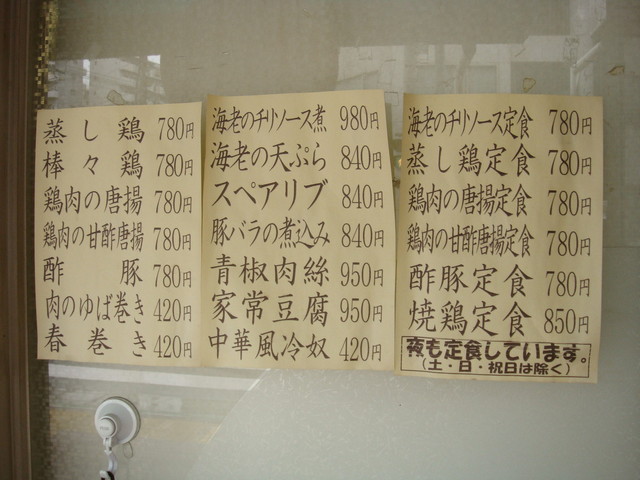 蒸し鶏 780円
棒々鶏 780円
鶏肉の唐揚 780円
鶏肉の甘酢唐揚 780円
酢豚 780円
肉のゆば巻き 420円
春巻き 420円
海老のチリソース煮 980円
海老の天ぷら 840円
スペアリブ 840円
豚バラの煮込み 840円
青椒肉絲 950円
家常豆腐 950円
中華風冷奴 420円
海老のチリソース定食 780円
蒸し鶏定食 780円
鶏肉の唐揚定食 780円
鶏肉の甘酢唐揚定食 780円
酢豚定食 780円
焼鶏定食 850円
夜も定食しています。
(土・日・祝日は除く)